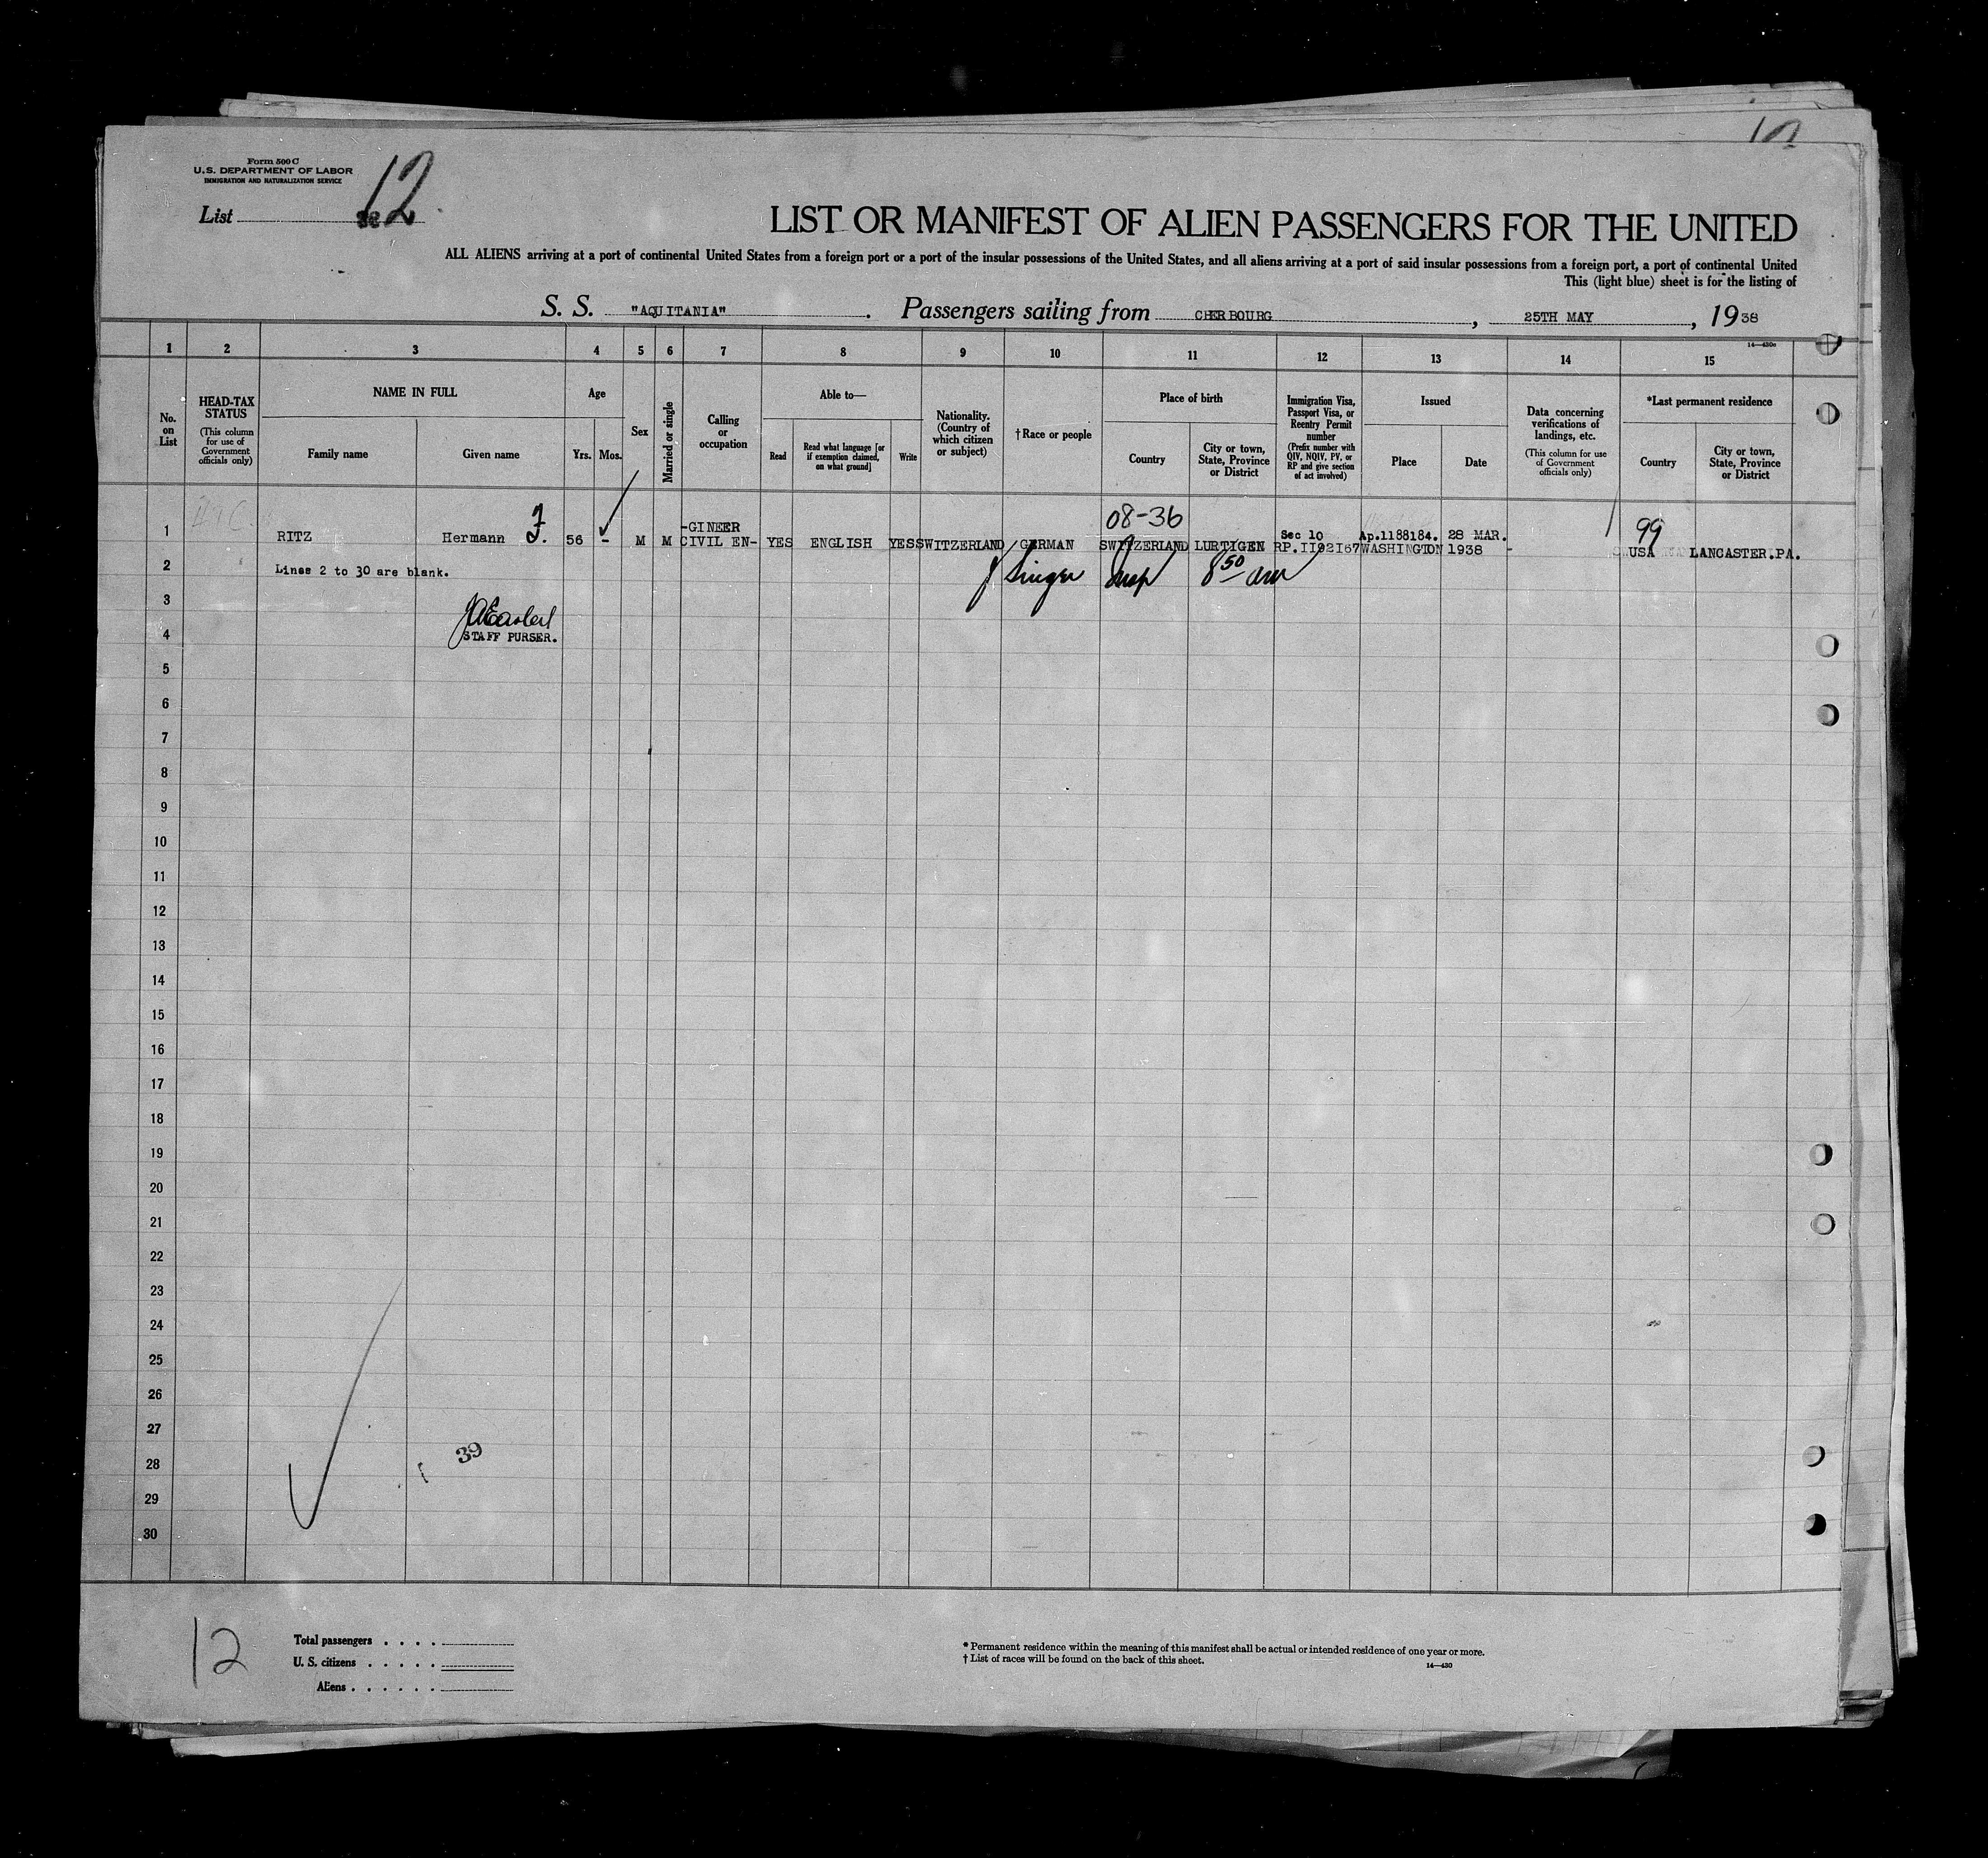 12
Form 500 C
U.S. DEPARTMENT OF LABOR
IMMIGRATION AND NATURALIZATION SERVICE
List 12
LIST OR MANIFEST OF ALIEN PASSENGERS FOR THE UNITED
ALL ALIENS arriving at a port of continental United States from a foreign port or a port of the insular possessions of the United States, and all aliens arriving at a port of said insular possessions from a foreign port, a port of continental United
This (light blue) sheet is for the listing of
S. S. "AQUITANIA". Passengers sailing from CHERBOURG, 25TH MAY, 1938
14—430a
1 2 3 4 5 6 7 8 9 10 11 12 13 14 15
No. on List
HEAD-TAX STATUS
(This column for use of Government officials only)
NAME IN FULL
Family name
Given name
Age
Yrs. Mos.
Sex
Married or single
Calling or occupation
Able to—
Read
Read what language [or if exemption claimed, on what ground]
Write
Nationality. (Country of which citizen or subject)
†Race or people
Place of birth
Country
City or town, State, Province or District
Immigration Visa, Passport Visa, or Reentry Permit number
(Prefix number with QIV, NQIV, PV, or RP and give section of act involved)
Issued
Place
Date
Data concerning verifications of landings, etc.
(This column for use of Government officials only)
*Last permanent residence
Country
City or town, State, Province or District
08-36
99
-GINEER Sec 10 Ap.1188184. 28 MAR.
1 RITZ Hermann F. 56 - M M CIVIL EN- YES ENGLISH YES SWITZERLAND GERMAN SWITZERLAND LURTIGEN RP.II92I67 WASHINGTON 1938 - USA LANCASTER.PA.
2 Lines 2 to 30 are blank. J Singer Insp 8 50 am
3
STAFF PURSER.
4
5
6
7
8
9
10
11
12
13
14
15
16
17
18
19
20
21
22
23
24
25
26
27
39
28
29
30
12
Total passengers . . . .
U. S. citizens . . . . .
Aliens . . . . . .
* Permanent residence within the meaning of this manifest shall be actual or intended residence of one year or more.
† List of races will be found on the back of this sheet.
14—430